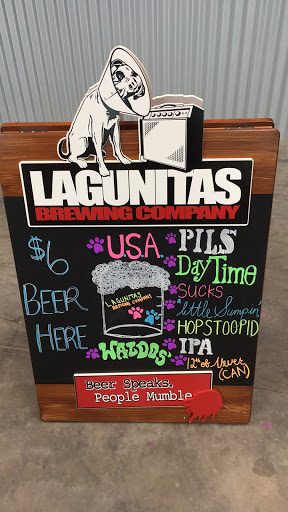 LAGUNITAS
BREWING COMPANY
$6
BEER
HERE
U.S.A.
LAGUNITAS
BREWING COMPANY
WALDOS'
PILS
DayTime
SUCKS
"little Sumpin'"
HOPSTOOPID
IPA
12th of Never
(CAN)
Beer Speaks.
People Mumble.